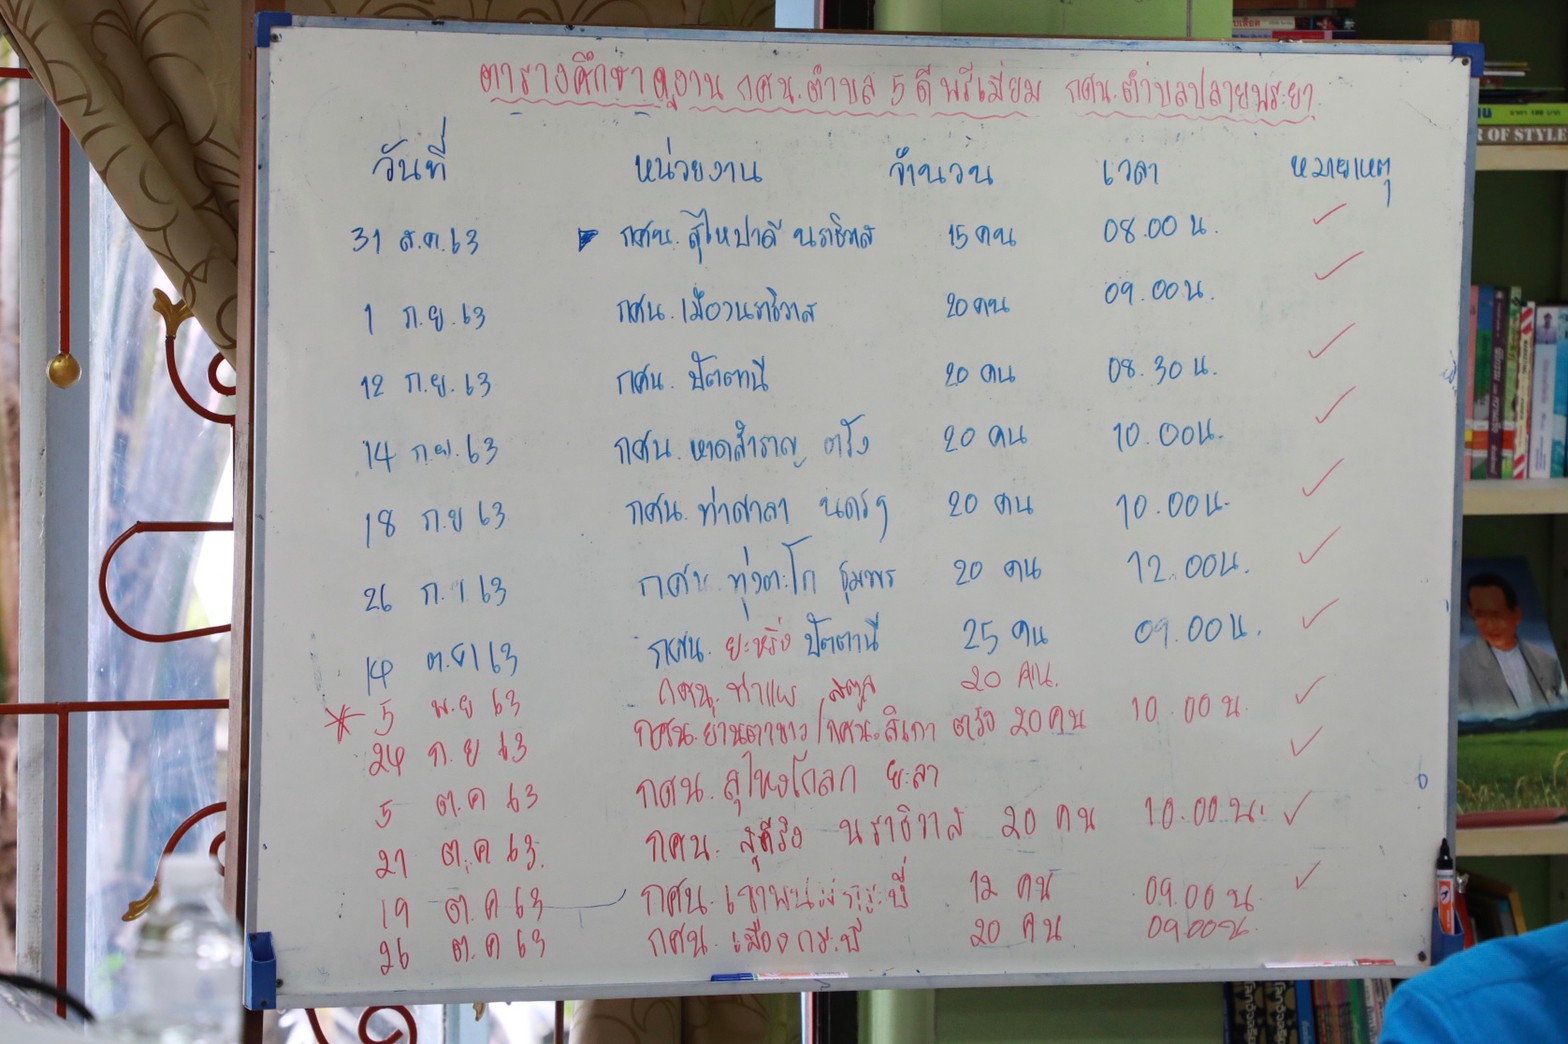 ตารางศึกษาดูงาน กศน.ตำบล 5 ดี พรีเมี่ยม กศน.ตำบลปลายพระยา
วันที่ หน่วยงาน จำนวน เวลา หมายเหตุ
31 ส.ค.63 กศน. สุไหปาดี นราธิวาส 15 คน 08.00 น.
1 ก.ย.63 กศน. เมืองนราธิวาส 20 คน 09.00 น.
12 ก.ย.63 กศน. ปัตตานี 20 คน 08.30 น.
14 ก.ย.63 กศน. หาดสำราญ ตรัง 20 คน 10.00 น.
18 ก.ย 63 กศน. ท่าศาลา นครฯ 20 คน 10.00 น.
26 ก.ย 63 กศน. ทุ่งตะโก ชุมพร 20 คน 12.00 น.
ต.ค 63 กศน. ยะหริ่ง ปัตตานี 25 คน 09.00 น.
5 พ.ย 63 กศน. ท่าแพ สตูล 20 คน.
24 ก.ย 63 กศน. ย่านตาขาว/กศน. สิเกา ตรัง 20 คน 10.00 น.
5 ต.ค 63 กศน. สุไหงโกลก ยะลา
21 ต.ค 63. กศน. สุคิริน นราธิวาส 20 คน 10.00 น.
19 ต.ค 63 กศน. เขาพนม กระบี่ 12 คน 09.00 น.
26 ต.ค 63 กศน. เมืองกระบี่ 20 คน 09.00 น.
OF STYLE